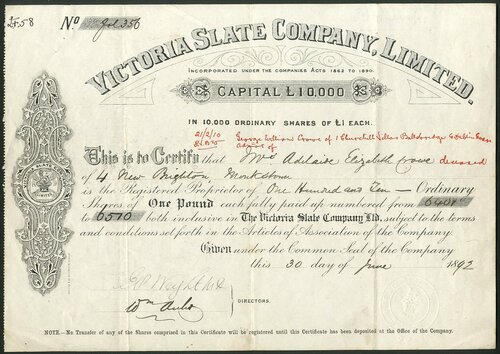 £5.58
No Fol 356
VICTORIA SLATE COMPANY, LIMITED.
INCORPORATED UNDER THE COMPANIES ACTS 1862 TO 1890.
CAPITAL £10,000
IN 10,000 ORDINARY SHARES OF £1 EACH.
21/2/10 George William Crowe of 1 Churchill Villas
This is to Certify that Mrs Adelaide Elizabeth Crowe deceased
of 4 New Brighton, Monkstown
is the Registered Proprietor of One Hundred and Ten — Ordinary
Shares of One Pound each fully paid up numbered from 6401
to 6510 both inclusive in The Victoria Slate Company Ltd, subject to the terms
and conditions set forth in the Articles of Association of the Company.
Given under the Common Seal of the Company
this 30 day of June 1892
LIMITED
DIRECTORS.
NOTE.—No Transfer of any of the Shares comprised in this Certificate will be registered until this Certificate has been deposited at the Office of the Company.